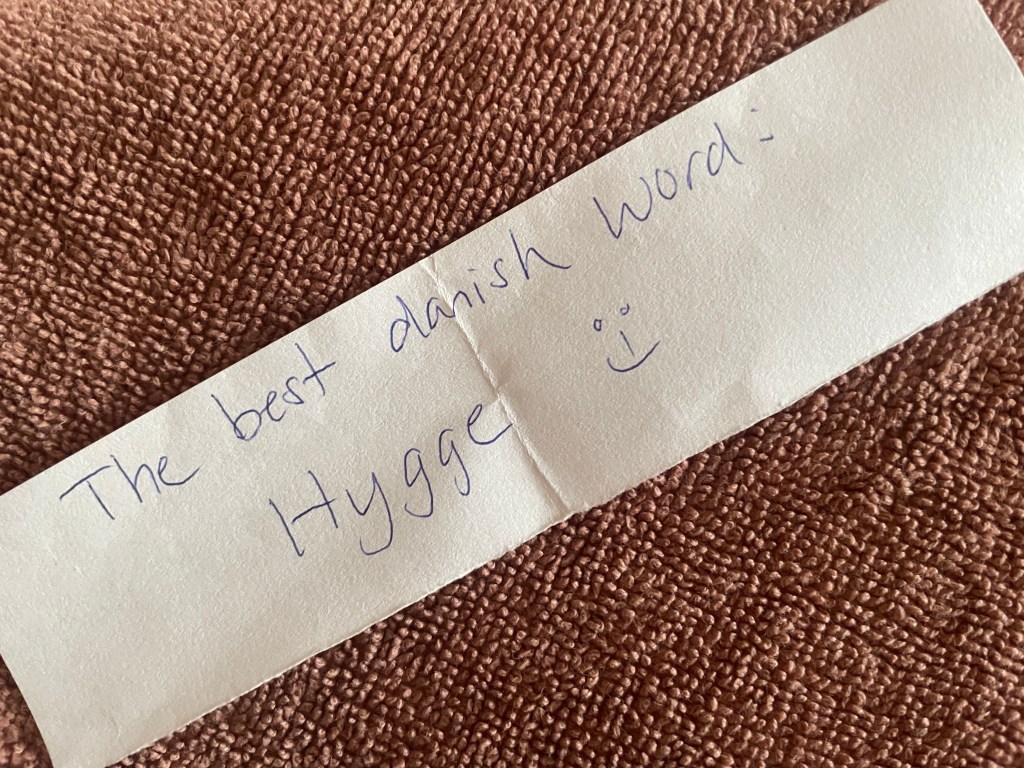 The best danish word:
Hygge